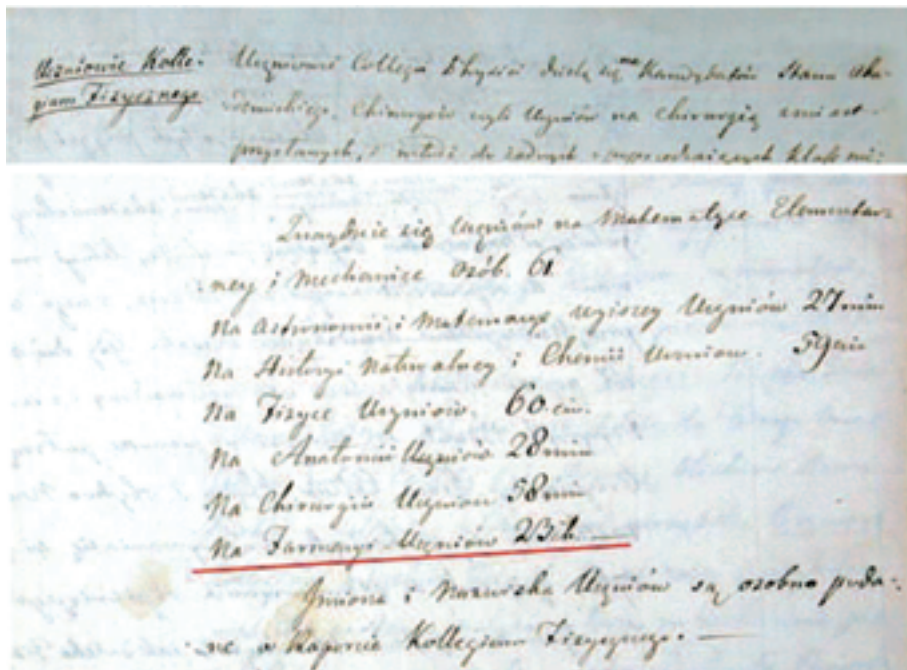 Uczniowie Kolle-
gium Fizycznego
Uczniowie Collegii Physici dzielą się na Kandydatów Stanu Aka-
demickiego, Chirurgów czyli Uczniów na Chirurgią z miast
przysłanych, i
Znayduie się Uczniów na Matematyce Elementar-
ney i Mechanice Osób. 61
Na Astronomii i Matematyce wyższey Uczniów 27miu
Na Historyi Naturalney i Chemii Uczniow. 59ciu
Na Fizyce Uczniów. 60.ciu.
Na Anatomii Uczniów 28miu
Na Chirurgii Uczniów 58miu
Na Farmacyi Uczniów 23ch.
Jmiona i Nazwiska Uczniów są osobno poda-
ne w Raporcie Kollegium Fizycznego.